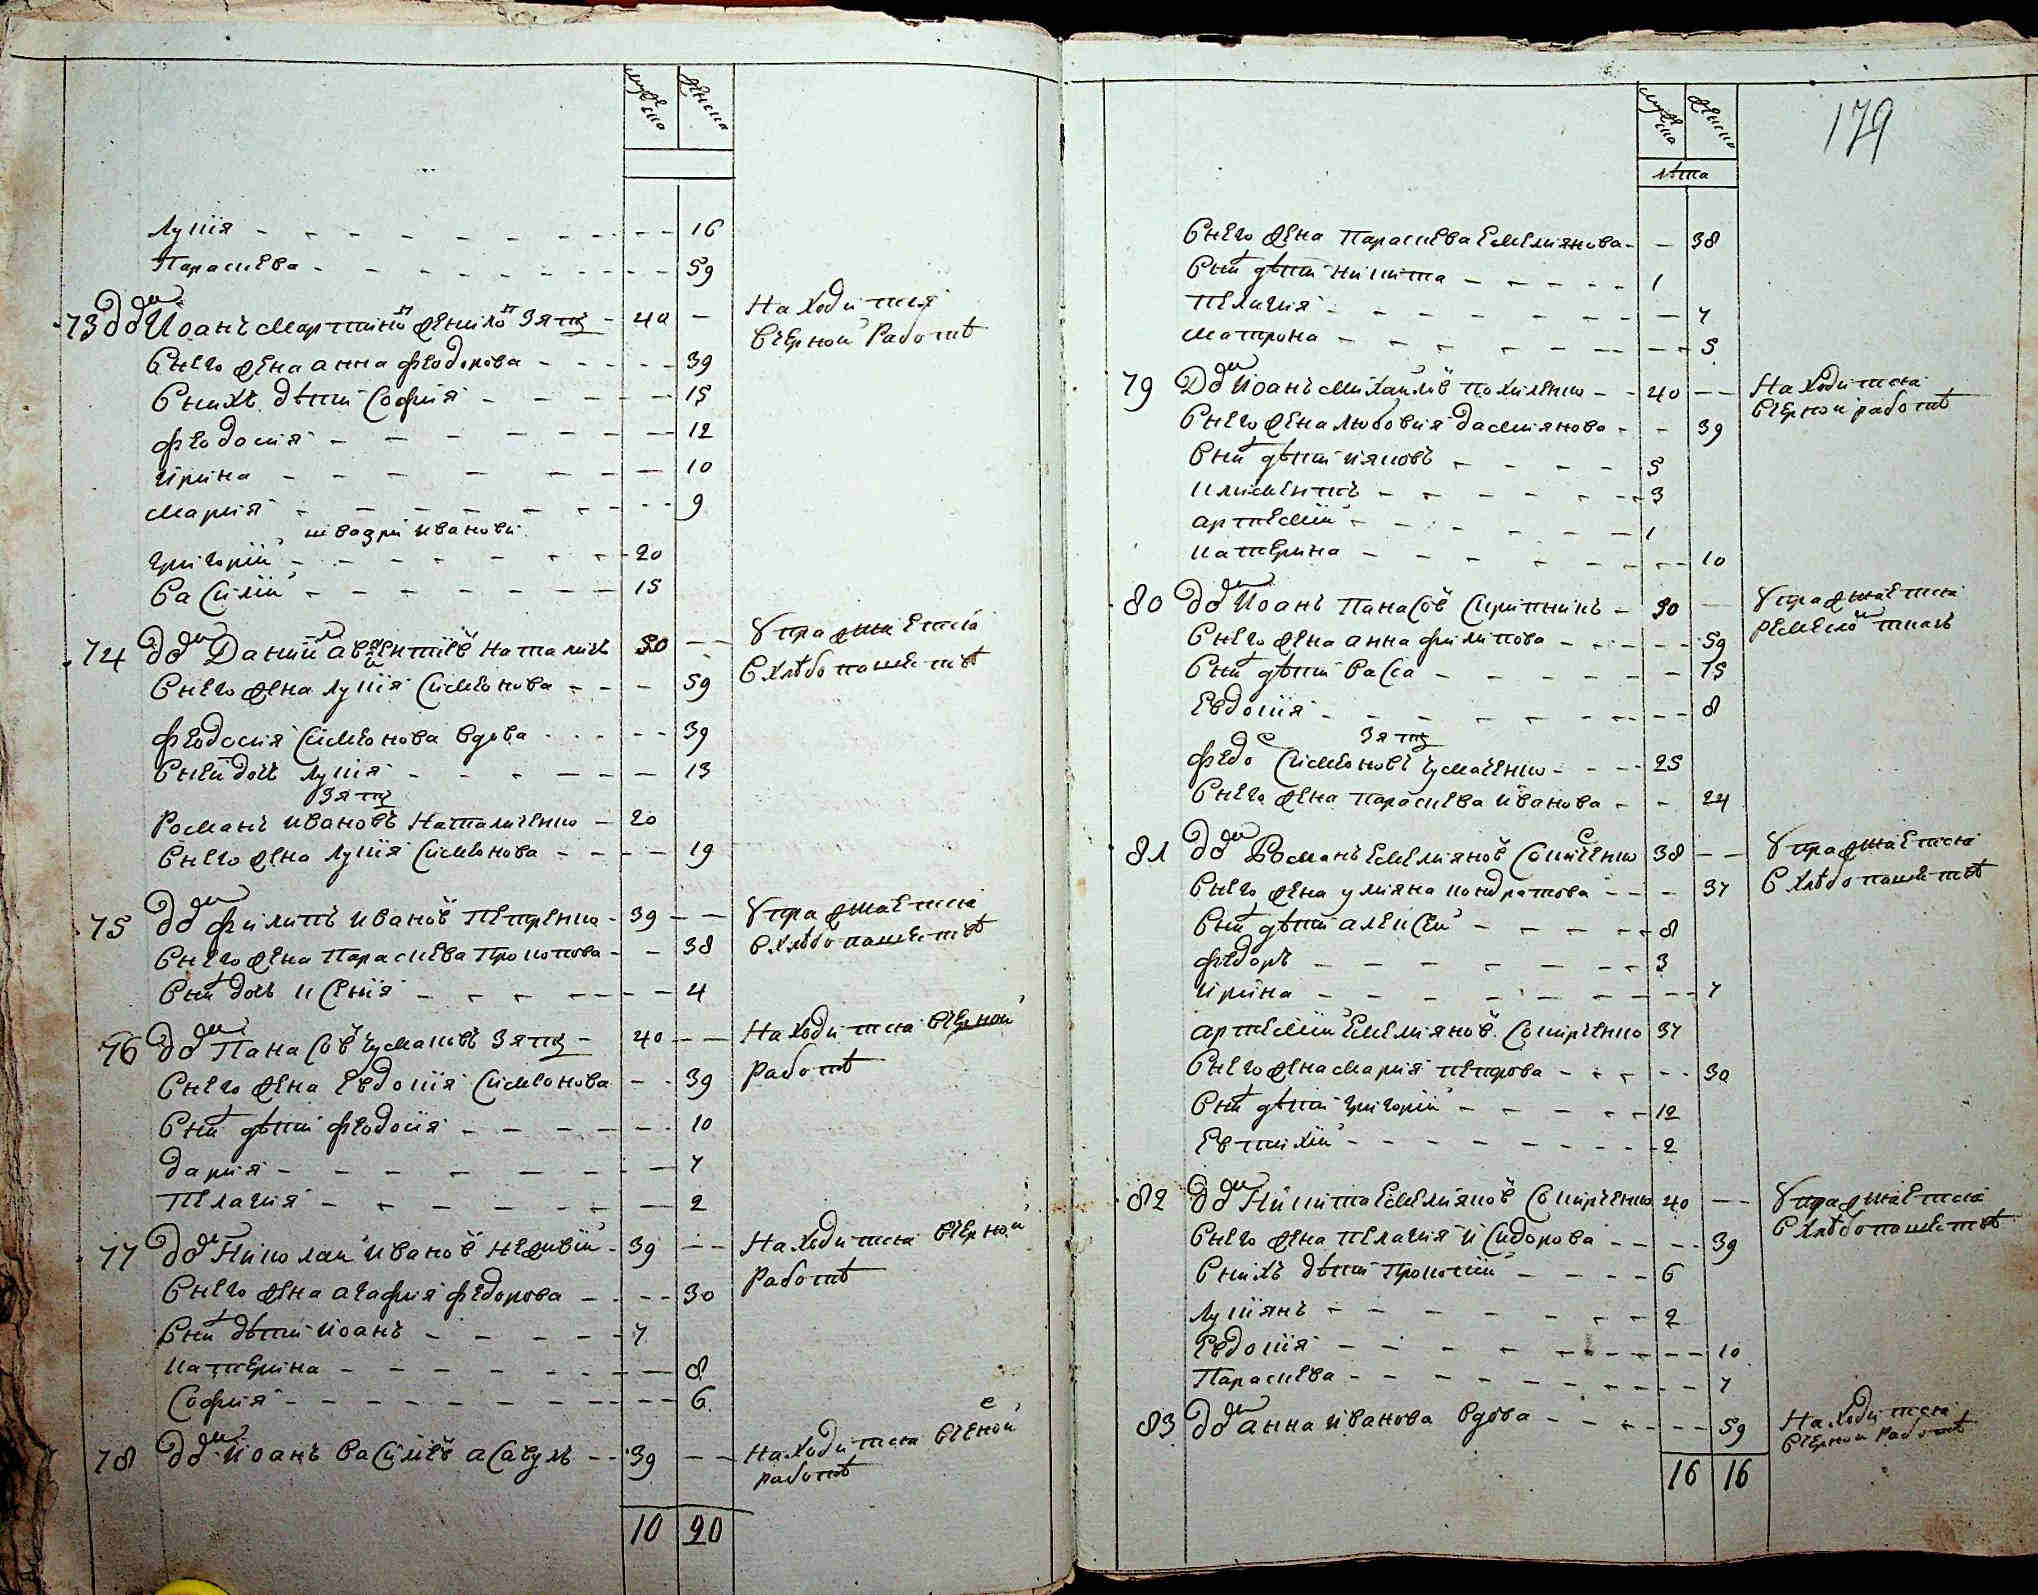 мужеска женска
Лукія 16
Параскева 59
73 дво Иоанъ Мартинов Зять 40 — Находится
в черной работѣ
В него жена Анна Феодорова 39
В нихъ дѣти Софія 15
Феодосия 12
Ирина 10
Мария 9
швагри Иванови
Григорій 20
Василій 15
74 дво Даниил Авксентіев Наталичъ 50 — Упражняется
в хлѣбопашествѣ
В него жена Лукія Симеонова 59
Феодосия Симеонова вдова 39
В неи дочь Лукія 13
Зять
Романъ Ивановъ Наталиченко 20
В него жена Лукія Симеонова 19
75 дво Филипъ Иванов Петренко 39 — Упражняется
в хлѣбопашествѣ
В него жена Параскева Прокопова 38
В них дочь Ксения 4
76 дво Панасов Чумаковъ Зять 40 — Находится в черной
работѣ
В него жена Евдокія Симеонова 39
В них дѣти Феодосия 10
Дария 7
Пелагия 2
77 дво Николай Иванов Неживій 39 — Находится в черной
работѣ
В него жена Агафия Федорова 30
В них дѣти Иоанъ 7
Катерина 8
София 6
78 дво Иоанъ Васілиев Асавулъ 39 — Находится в черной
работѣ
10 20
мужеска женска
179
лѣта
В него жена Параскева Емелиянова 38
В них дѣти Никита 1
Пелагия 7
Матрона 5
79 Дво Иоанъ Михайлов Похиленко 40 — Находится
в черной работѣ
В него жена Любовия Дамиянова 39
В них дѣти Ияковъ 5
Климентъ 3
Артемій 1
Катерина 10
80 дво Иоанъ Панасов Скрипникъ 90 — Упражняется
ремеслом ткачъ
В него жена Анна Филипова 59
В них дѣти Васса 15
Евдокія 8
Зять
Федо Симеоновъ Чумаченко 25
В него жена Параскева Иванова 24
81 дво Романъ Емелиянов 38 — Упражняется
в хлѣбопашествѣ
В него жена Улияна Кондратова 37
В них дѣти Алексей 8
Федоръ 3
Ирина 7
Артемій Емелиянов 37
В него жена Мария Петрова 30
В них дѣти Григорій 12
Евтихій 2
82 дво Никита Емелиянов 40 — Упражняется
в хлѣбопашествѣ
В него жена Пелагия Исидорова 39
В нихъ дѣти Прокопій 6
Лукиянъ 2
Евдокія 10
Параскева 7
83 дво Анна Иванова вдова 59 Находится
в черной работѣ
16 16